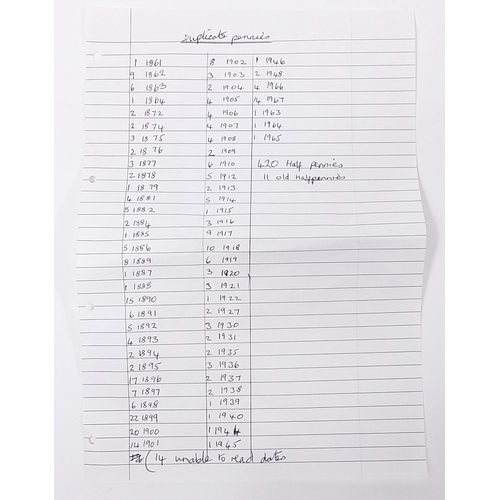 Duplicate pennies
1 1861
9 1862
6 1863
1 1864
2 1872
2 1874
3 1875
2 1876
3 1877
2 1878
1 1879
4 1881
5 1882
2 1884
1 1885
5 1886
8 1889
1 1887
1 1888
15 1890
6 1891
5 1892
4 1893
2 1894
2 1895
17 1896
7 1897
6 1898
22 1899
20 1900
14 1901
8 1902
3 1903
2 1904
4 1905
4 1906
4 1907
4 1908
2 1909
6 1910
5 1912
2 1913
5 1914
1 1915
3 1916
9 1917
10 1918
6 1919
3 1920
3 1921
1 1922
2 1927
3 1930
2 1931
2 1935
3 1936
2 1937
2 1938
1 1939
1 1940
1 1944
1 1945
1 1946
2 1948
4 1966
4 1967
1 1963
1 1964
1 1965
420 Half pennies
11 old Halfpennies
(14 unable to read dates